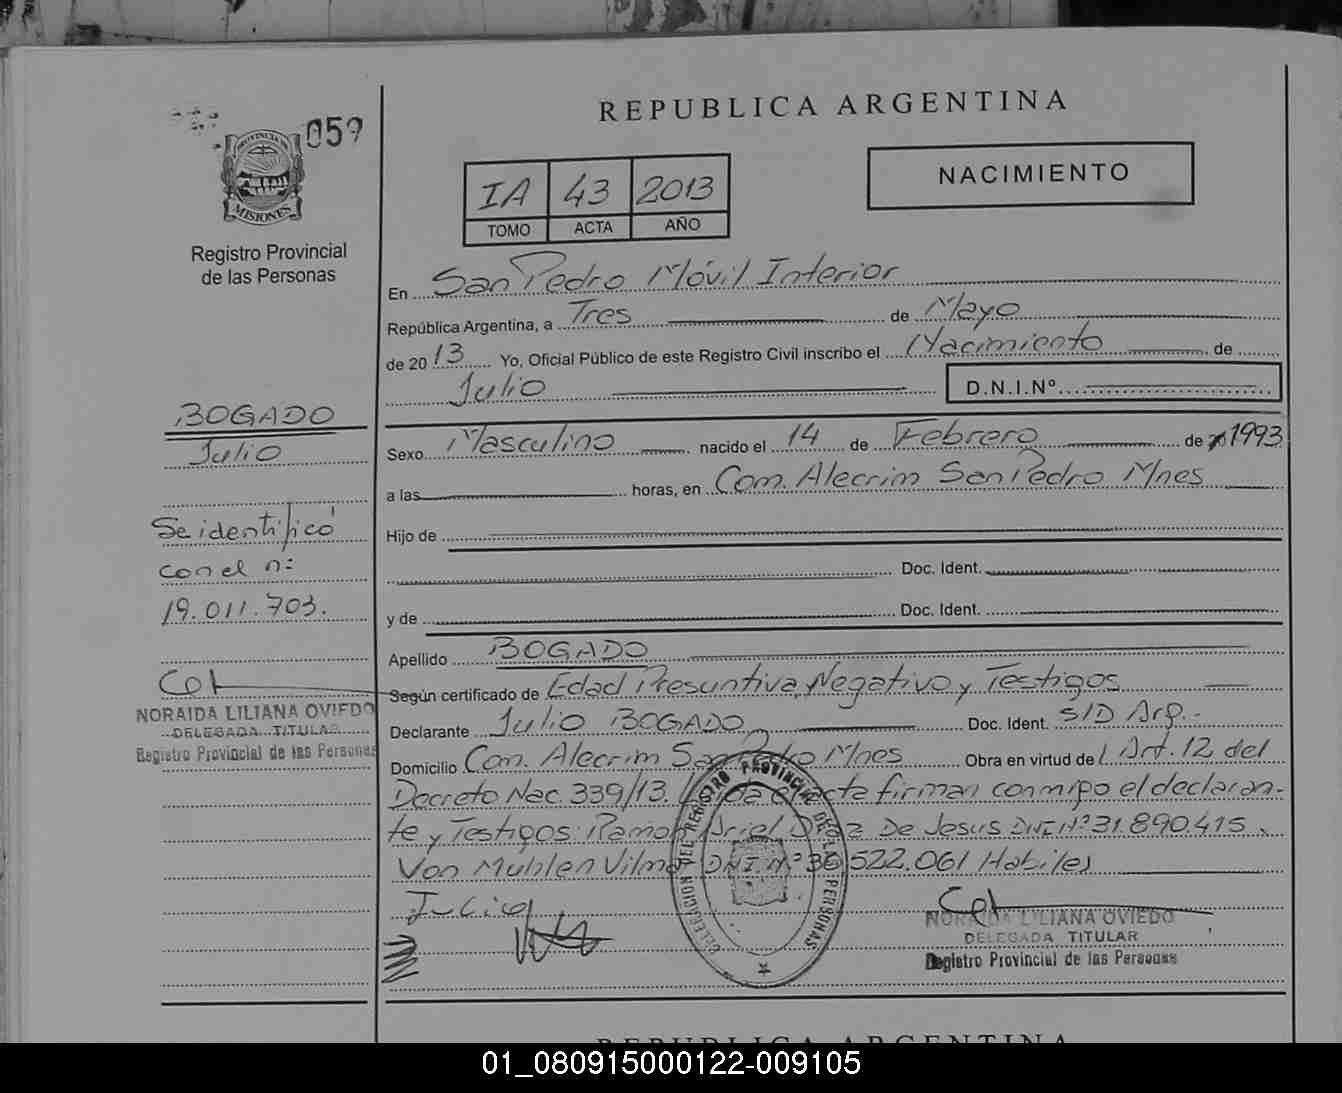 REPUBLICA ARGENTINA
059
PROVINCIA DE
MISIONES
Registro Provincial
de las Personas
IA 43 2013
TOMO ACTA AÑO
NACIMIENTO
En San Pedro Móvil Interior
República Argentina, a Tres de Mayo
de 2013 Yo, Oficial Público de este Registro Civil inscribo el Nacimiento de
Julio D.N.I.Nº
BOGADO
Julio
Se identificó
con el n:
19.011.703.
NORAIDA LILIANA OVIEDO
DELEGADA TITULAR
Registro Provincial de las Personas
Sexo Masculino nacido el 14 de Febrero de 1993
a las horas, en Com. Alecrim San Pedro Mnes
Hijo de
Doc. Ident.
y de Doc. Ident.
Apellido BOGADO
Según certificado de Edad Presuntiva, Negativo y Testigos
Declarante Julio BOGADO Doc. Ident. S/D Arg.-
Domicilio Com. Alecrim San Pedro Mnes Obra en virtud del Art. 12 del
Decreto Nac. 339/13. Leída el acta firman conmigo el declaran-
te y Testigos: Ramón Ariel Díaz De Jesus DNI Nº 31.890.415,
Von Muhlen Vilma DNI. N.º 36.522.061 Habiles
Julio
DELEGACION DEL REGISTRO PROVINCIAL DE LAS PERSONAS
NORAIDA LILIANA OVIEDO
DELEGADA TITULAR
Registro Provincial de las Personas
REPUBLICA ARGENTINA
01_080915000122-009105